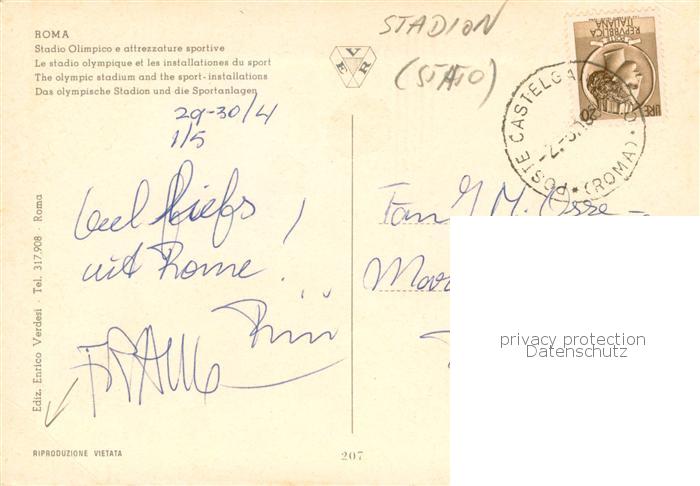 ROMA
Stadio Olimpico e attrezzature sportive
Le stadio olympique et les installationes du sport
The olympic stadium and the sport-installations
Das olympische Stadion und die Sportanlagen
VER
STADION
(STATO)
REPUBBLICA
ITALIANA
LIRE 20
POSTE CASTELGA
(ROMA)
29-30/4
1/5
Veel liefs
uit Rome!
Fam
M.
privacy protection
Datenschutz
Ediz. Enrico Verdesi · Tel. 317.908 · Roma
RIPRODUZIONE VIETATA
207